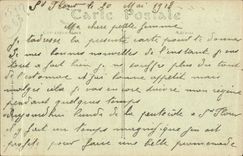 St Flour le 20 Mai 1918
Carte Postale
Ma chère petite femme
Je t'adresse la présente carte pour te donner
de mes bonnes nouvelles de l'instant que
tout a fait bien je ne souffre plus du tout
de l'estomac et j'ai bonne appétit mais
malgré cela je vas encore suivre mon régime
pendant quelques temps
Aujourd'hui lundi de la pentecôte a St Flour
il y fait un temps magnifique qui est
propice pour faire une belle promenade